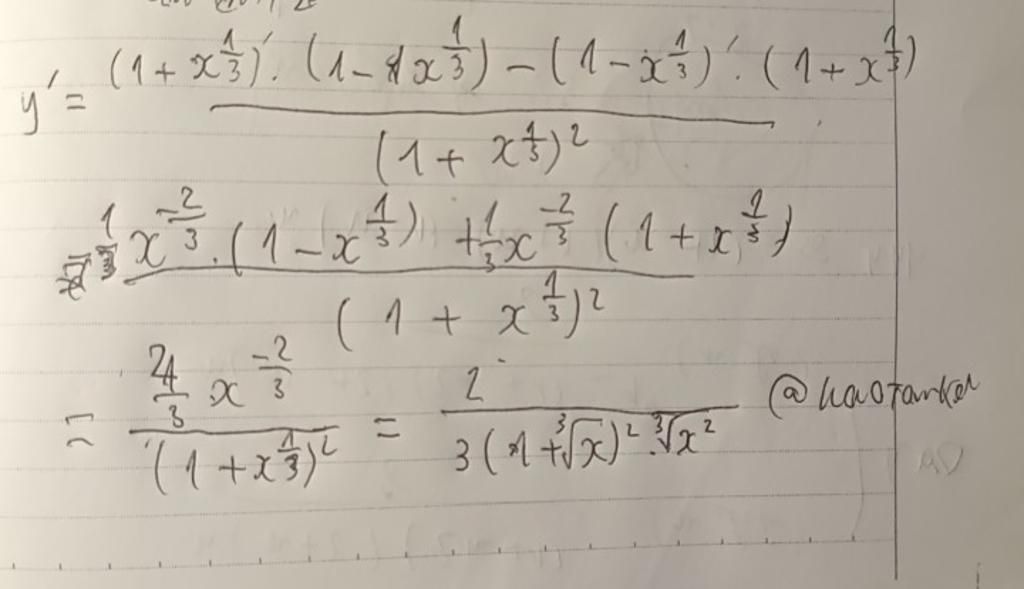 y' = \frac{(1 + x^{\frac{1}{3}})' \cdot (1 - x^{\frac{1}{3}}) - (1 - x^{\frac{1}{3}})' \cdot (1 + x^{\frac{1}{3}})}{(1 + x^{\frac{1}{3}})^2}
= \frac{\frac{1}{3} x^{-\frac{2}{3}} \cdot (1 - x^{\frac{1}{3}}) + \frac{1}{3} x^{-\frac{2}{3}} (1 + x^{\frac{1}{3}})}{(1 + x^{\frac{1}{3}})^2}
= \frac{\frac{2}{3} x^{-\frac{2}{3}}}{(1 + x^{\frac{1}{3}})^2} = \frac{2}{3(1 + \sqrt[3]{x})^2 \cdot \sqrt[3]{x^2}}